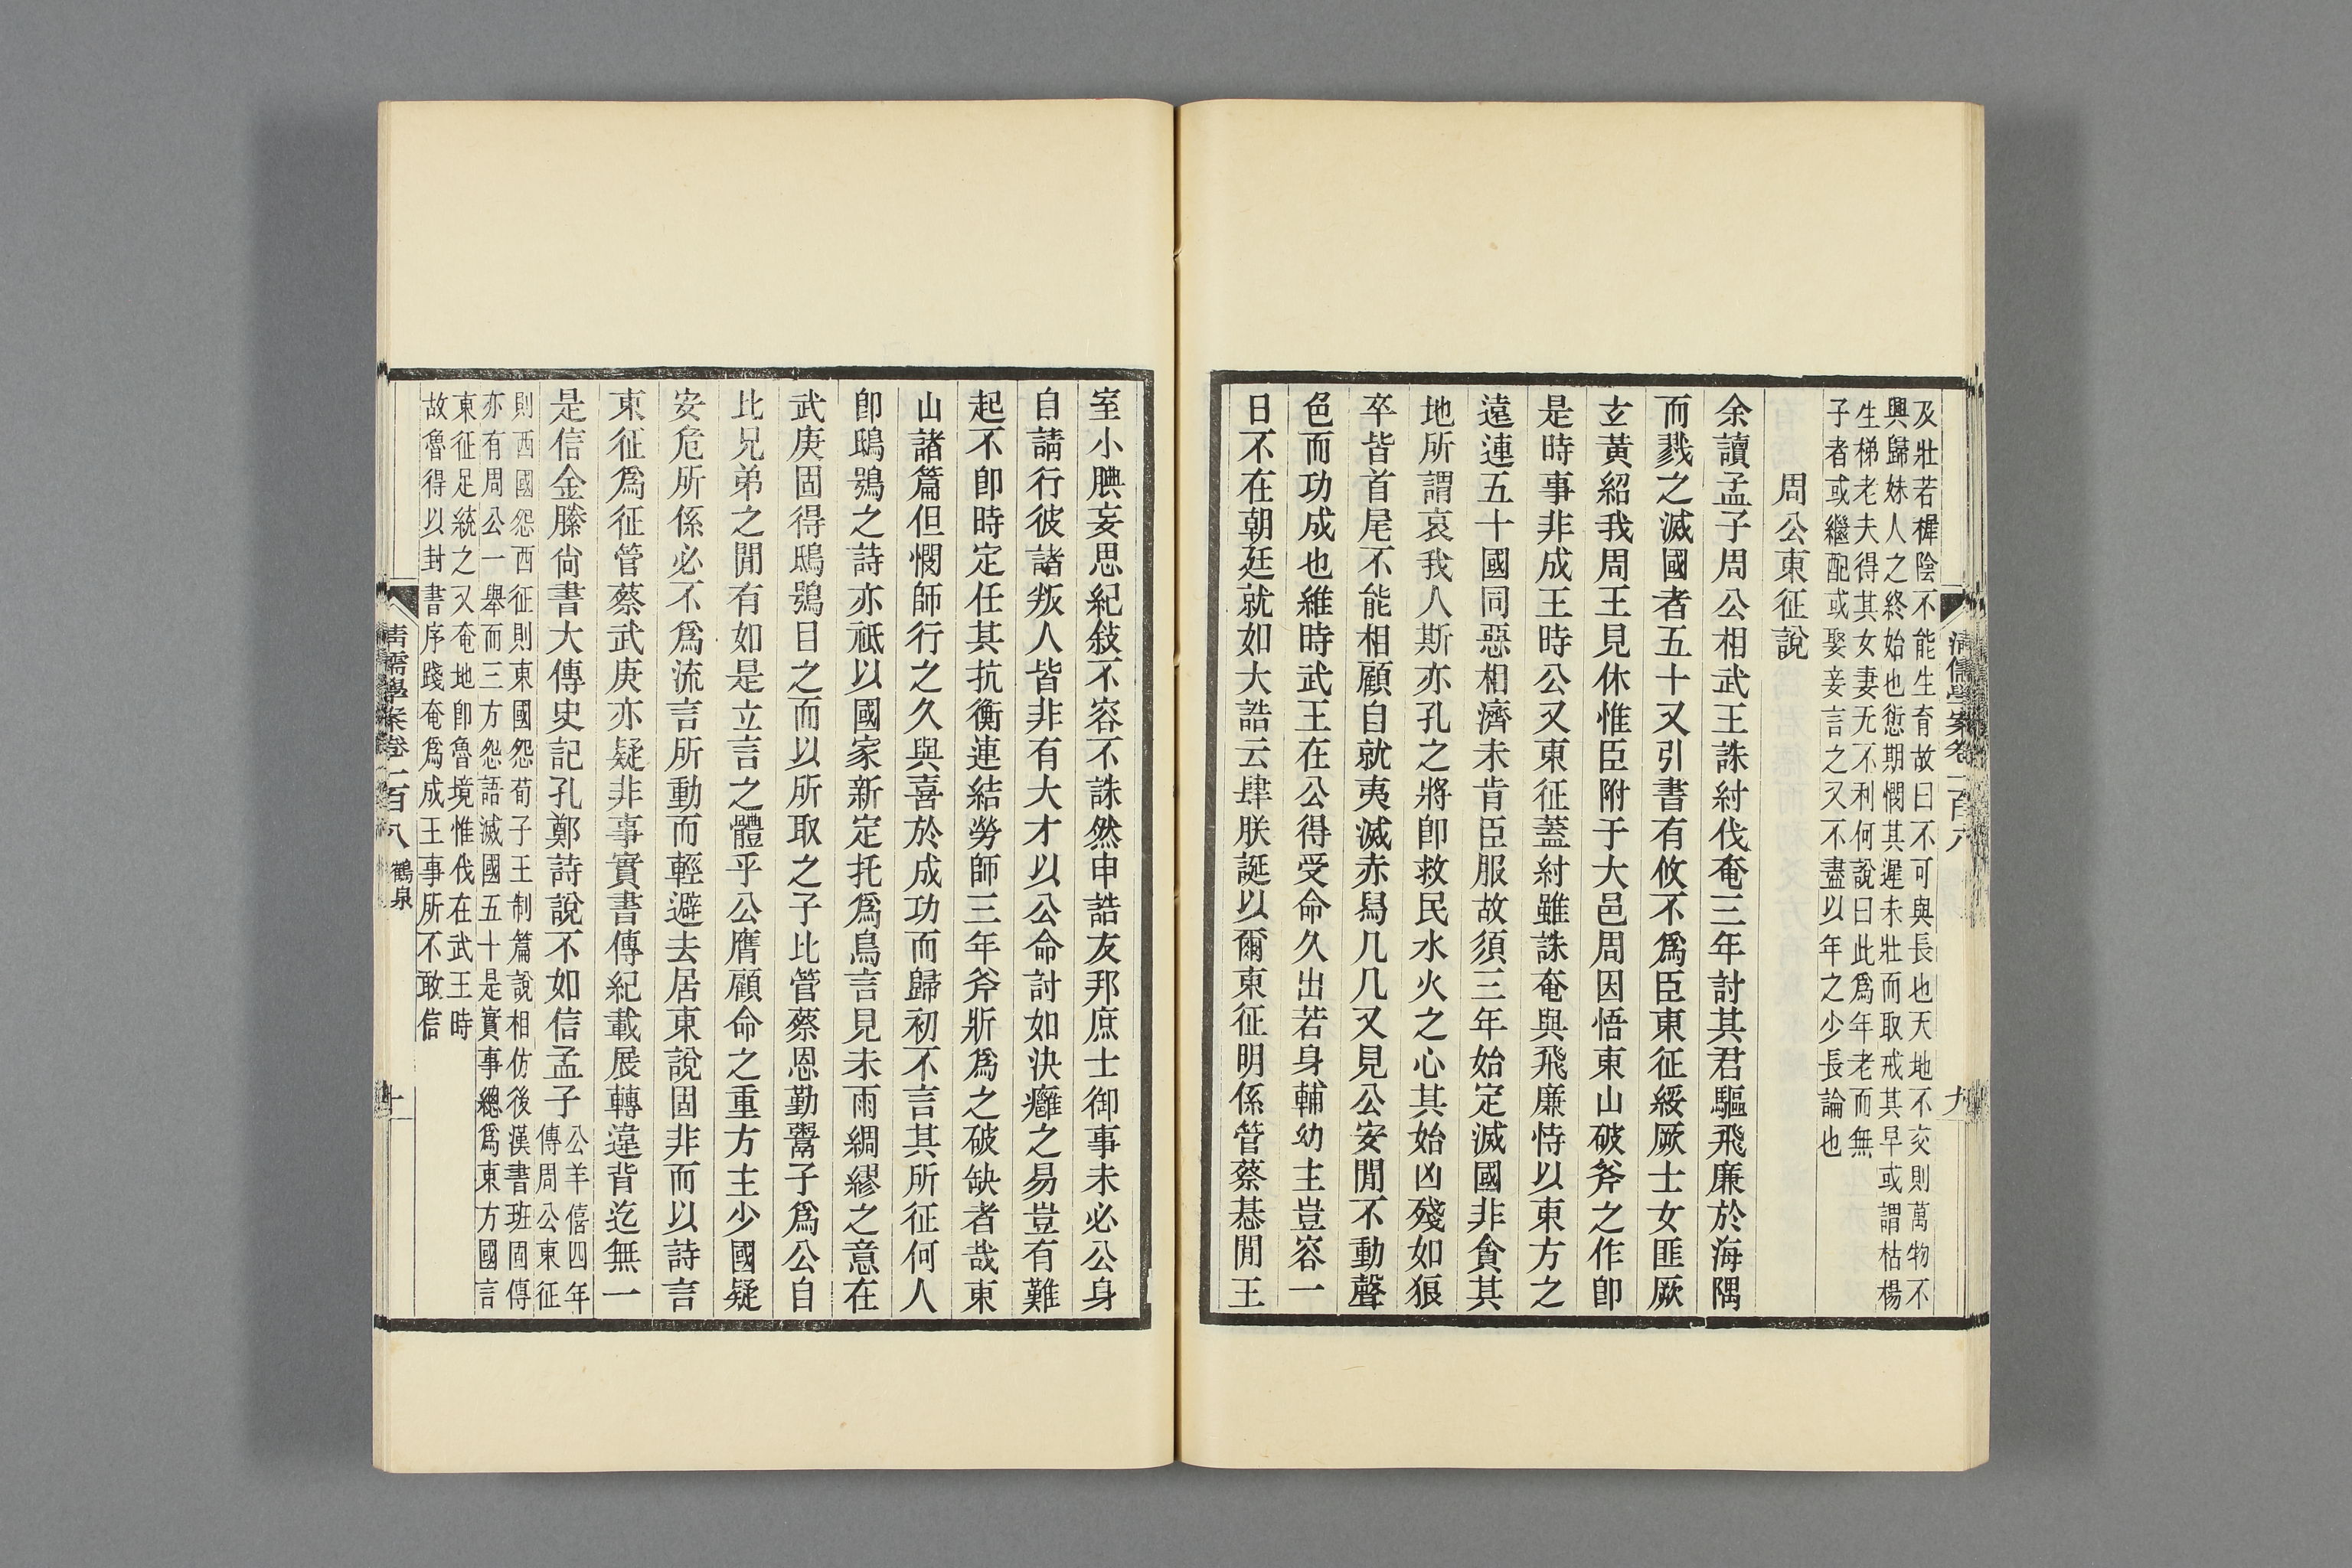 及壯若樨陰不能生育故曰不可與長也天地不交則萬物不
興歸妹人之終始也愆期憫其遲未壯而取戒其早或謂枯楊
生梯老夫得其女妻无不利何說曰此爲年老而無
子者或繼配或娶妾言之又不盡以年之少長論也
周公東征說
余讀孟子周公相武王誅紂伐奄三年討其君驅飛廉於海隅
而戮之滅國者五十又引書有攸不爲臣東征綏厥士女匪厥
玄黃紹我周王見休惟臣附于大邑周因悟東山破斧之作卽
是時事非成王時公又東征蓋紂雖誅奄與飛廉恃以東方之
遠連五十國同惡相濟未肯臣服故須三年始定滅國非貪其
地所謂哀我人斯亦孔之將卽救民水火之心其始凶殘如狼
卒皆首尾不能相顧自就夷滅赤舄几几又見公安閒不動聲
色而功成也維時武王在公得受命久出若身輔幼主豈容一
日不在朝廷就如大誥云肆朕誕以爾東征明係管蔡惎閒王
清儒學案卷一百八
九
室小腆妄思紀敍不容不誅然申誥友邦庶士御事未必公身
自請行彼諸叛人皆非有大才以公命討如決癰之易豈有難
起不卽時定任其抗衡連結勞師三年斧斨爲之破缺者哉東
山諸篇但憫師行之久與喜於成功而歸初不言其所征何人
卽鴟鴞之詩亦祗以國家新定托爲鳥言見未雨綢繆之意在
武庚固得鴟鴞目之而以所取之子比管蔡恩勤鬻子爲公自
比兄弟之閒有如是立言之體乎公膺顧命之重方主少國疑
安危所係必不爲流言所動而輕避去居東說固非而以詩言
東征爲征管蔡武庚亦疑非事實書傳紀載展轉違背迄無一
是信金縢尙書大傳史記孔鄭詩說不如信孟子公羊僖四年
傳周公東征
則西國怨西征則東國怨荀子王制篇說相仿後漢書班固傳
亦有周公一舉而三方怨語滅國五十是實事總爲東方國言
東征足統之又奄地卽魯境惟伐在武王時
故魯得以封書序踐奄爲成王事所不敢信
清儒學案卷一百八 鶴泉
十